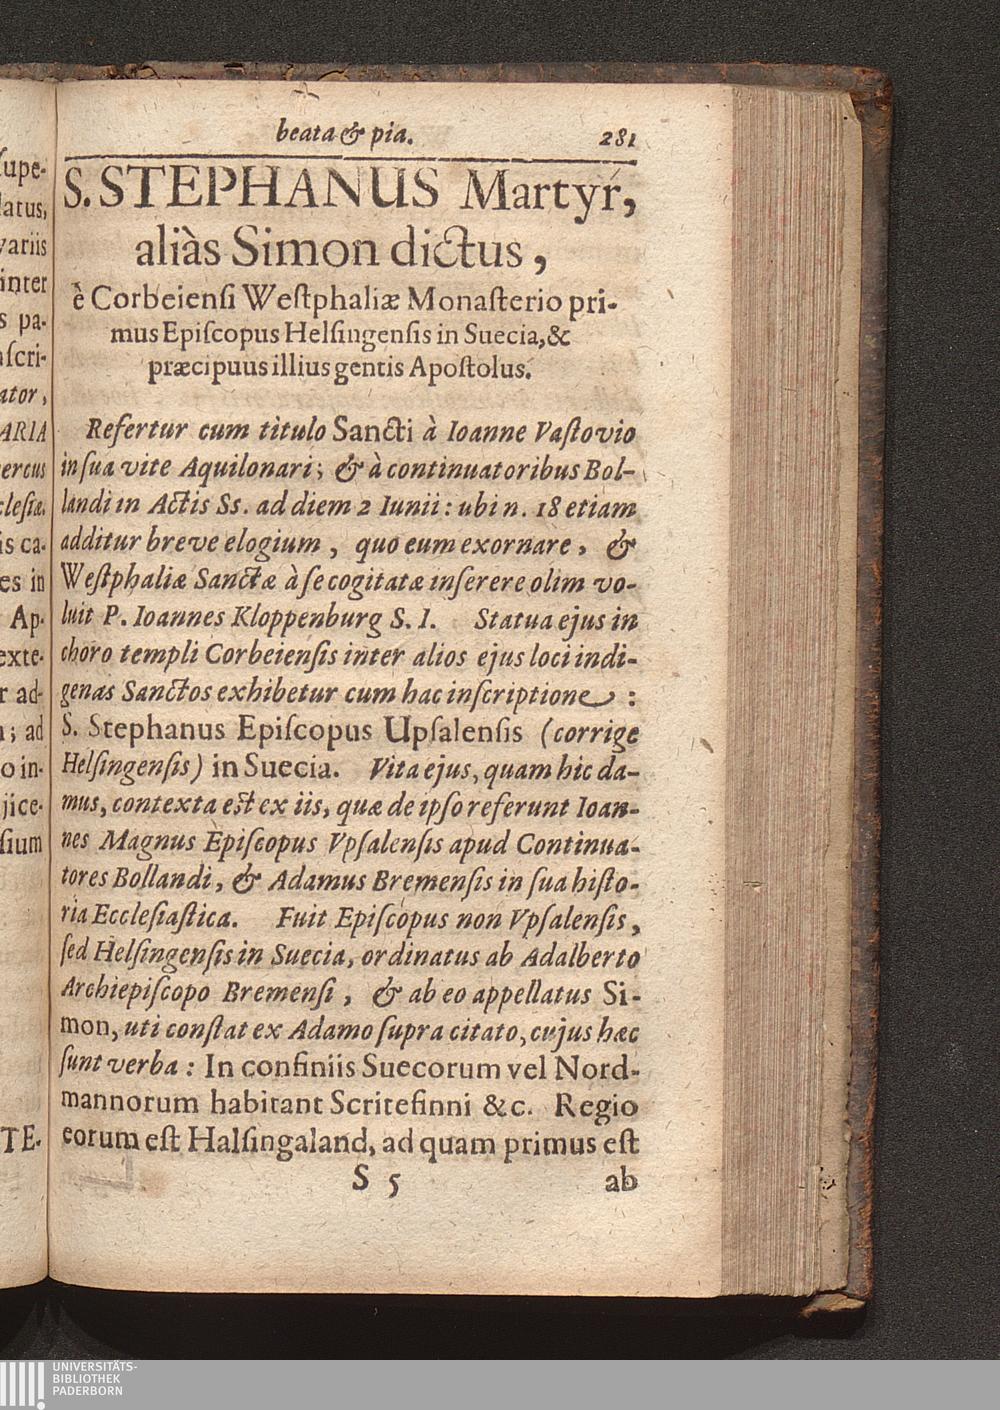 beata & pia. 281
S. STEPHANUS Martyr,
aliàs Simon dictus,
è Corbeienſi Weſtphaliæ Monaſterio pri-
mus Epiſcopus Helſingenſis in Suecia, &
præcipuus illius gentis Apoſtolus.
Refertur cum titulo Sancti à Ioanne Vaſtovio
in ſua vite Aquilonari; & à continuatoribus Bol-
landi in Actis Ss. ad diem 2 Iunii: ubi n. 18 etiam
additur breve elogium, quo eum exornare, &
Weſtphaliæ Sanctæ à ſe cogitatæ inſerere olim vo-
luit P. Ioannes Kloppenburg S. I. Statua ejus in
choro templi Corbeienſis inter alios ejus loci indi-
genas Sanctos exhibetur cum hac inſcriptione:
S. Stephanus Epiſcopus Upſalenſis (corrige
Helſingenſis) in Suecia. Vita ejus, quam hic da-
mus, contexta eſt ex iis, quæ de ipſo referunt Ioan-
nes Magnus Epiſcopus Vpſalenſis apud Continua-
tores Bollandi, & Adamus Bremenſis in ſua hiſto-
ria Eccleſiaſtica. Fuit Epiſcopus non Vpſalenſis,
ſed Helſingenſis in Suecia, ordinatus ab Adalberto
Archiepiſcopo Bremenſi, & ab eo appellatus Si-
mon, uti conſtat ex Adamo ſupra citato, cujus hæc
ſunt verba: In confiniis Suecorum vel Nord-
mannorum habitant Scritefinni &c. Regio
eorum eſt Halſingaland, ad quam primus eſt
S 5 ab
ſupe-
latus,
variis
inter
s pa-
ſcri-
ator,
ARIA
ercus
cleſiæ.
is ca-
es in
Ap-
exte-
r ad-
; ad
o in-
jice-
ſium
TE-
UNIVERSITÄTS-
BIBLIOTHEK
PADERBORN